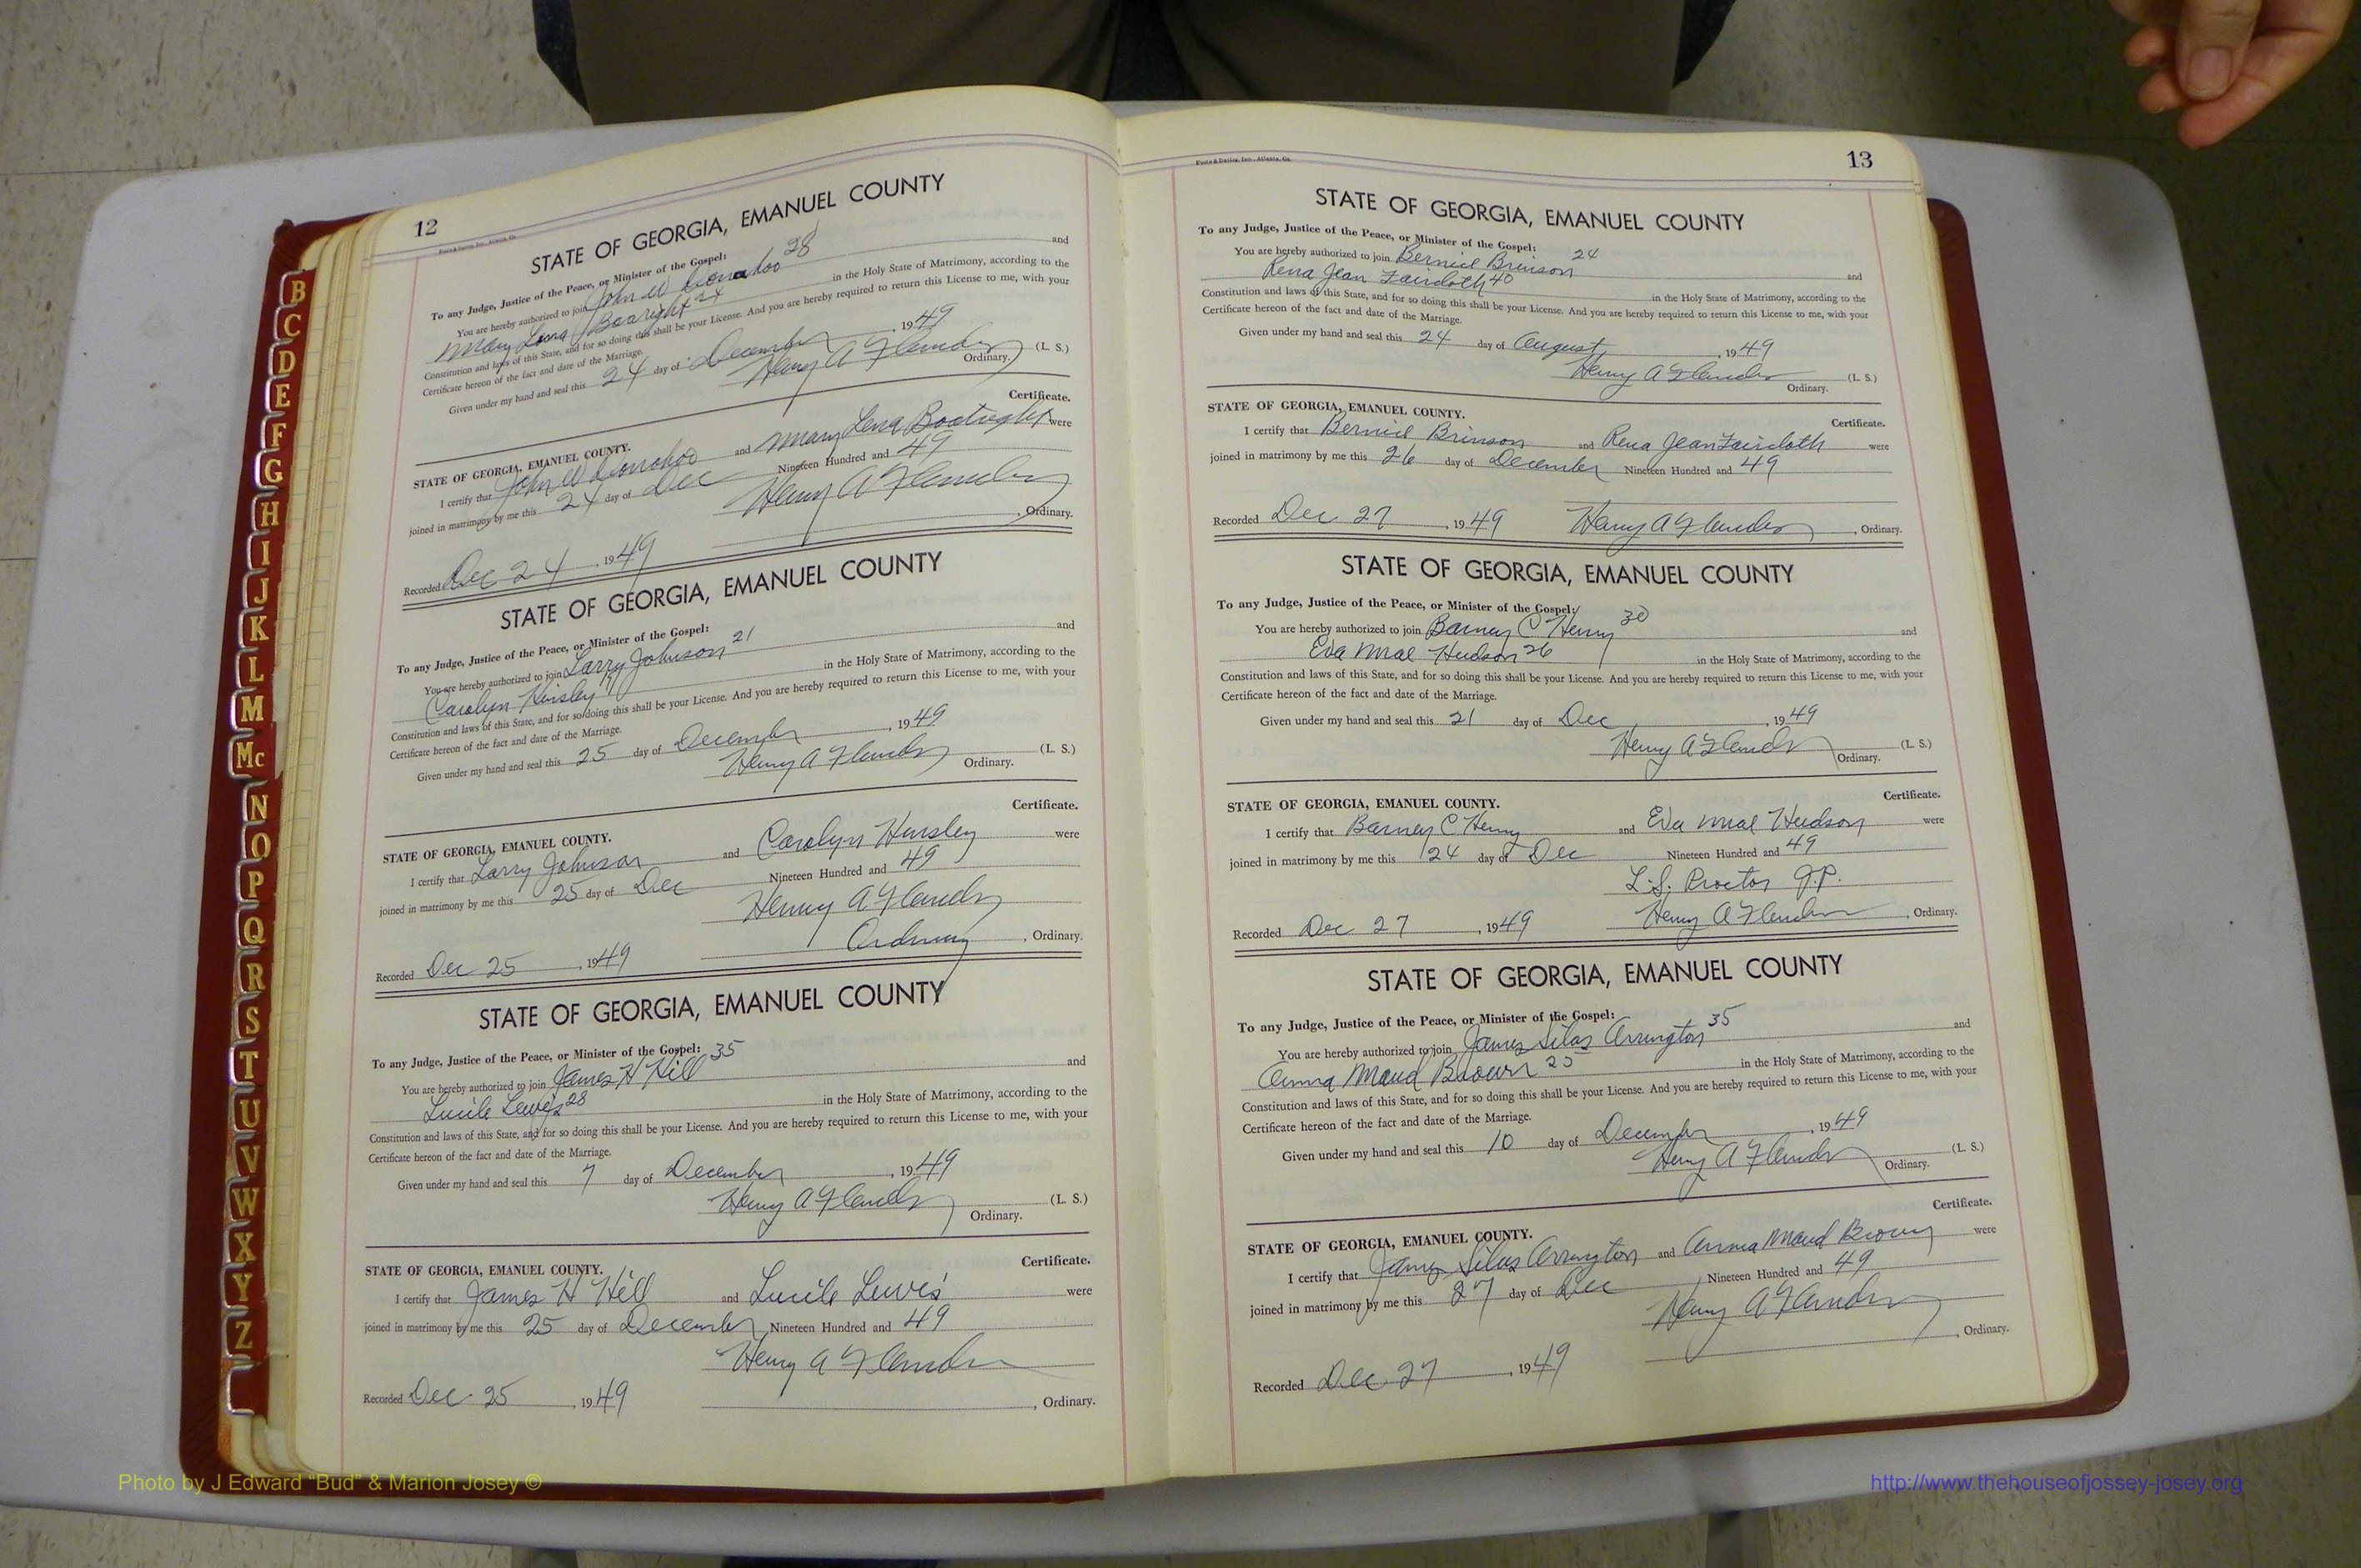 12
Foote & Davies, Inc., Atlanta, Ga.
STATE OF GEORGIA, EMANUEL COUNTY
To any Judge, Justice of the Peace, or Minister of the Gospel:
You are hereby authorized to join John W Donahoo 28 and
Mary Lena Boatright 24 in the Holy State of Matrimony, according to the
Constitution and laws of this State, and for so doing this shall be your License. And you are hereby required to return this License to me, with your
Certificate hereon of the fact and date of the Marriage.
Given under my hand and seal this 24 day of December, 1949
Henry A Flanders (L. S.)
Ordinary.
Certificate.
STATE OF GEORGIA, EMANUEL COUNTY.
I certify that John W Donohoo and Mary Lena Boatright were
joined in matrimony by me this 24 day of Dec Nineteen Hundred and 49
Henry A Flanders
Recorded Dec 24, 1949 , Ordinary.
STATE OF GEORGIA, EMANUEL COUNTY
To any Judge, Justice of the Peace, or Minister of the Gospel:
You are hereby authorized to join Larry Johnson 21 and
Carolyn Hensley 19 in the Holy State of Matrimony, according to the
Constitution and laws of this State, and for so doing this shall be your License. And you are hereby required to return this License to me, with your
Certificate hereon of the fact and date of the Marriage.
Given under my hand and seal this 25 day of December, 1949
Henry A Flanders (L. S.)
Ordinary.
Certificate.
STATE OF GEORGIA, EMANUEL COUNTY.
I certify that Larry Johnson and Carolyn Hensley were
joined in matrimony by me this 25 day of Dec Nineteen Hundred and 49
Henry A Flanders
Recorded Dec 25, 1949 Ordinary, Ordinary.
STATE OF GEORGIA, EMANUEL COUNTY
To any Judge, Justice of the Peace, or Minister of the Gospel:
You are hereby authorized to join James H Hill 35 and
Lucile Lewis 28 in the Holy State of Matrimony, according to the
Constitution and laws of this State, and for so doing this shall be your License. And you are hereby required to return this License to me, with your
Certificate hereon of the fact and date of the Marriage.
Given under my hand and seal this 7 day of December, 1949
Henry A Flanders (L. S.)
Ordinary.
Certificate.
STATE OF GEORGIA, EMANUEL COUNTY.
I certify that James H Hill and Lucile Lewis were
joined in matrimony by me this 25 day of December Nineteen Hundred and 49
Henry A Flanders
Recorded Dec 25, 1949 , Ordinary.
Foote & Davies, Inc., Atlanta, Ga.
13
STATE OF GEORGIA, EMANUEL COUNTY
To any Judge, Justice of the Peace, or Minister of the Gospel:
You are hereby authorized to join Berniel Brinson 24
Rena Jean Faircloth 40 and
in the Holy State of Matrimony, according to the
Constitution and laws of this State, and for so doing this shall be your License. And you are hereby required to return this License to me, with your
Certificate hereon of the fact and date of the Marriage.
Given under my hand and seal this 24 day of August, 1949
Henry A Flanders (L. S.)
Ordinary.
Certificate.
STATE OF GEORGIA, EMANUEL COUNTY.
I certify that Berniel Brinson and Rena Jean Faircloth were
joined in matrimony by me this 26 day of December Nineteen Hundred and 49
Recorded Dec 27, 1949 Henry A Flanders, Ordinary.
STATE OF GEORGIA, EMANUEL COUNTY
To any Judge, Justice of the Peace, or Minister of the Gospel:
You are hereby authorized to join Barney C Henry 30 and
Eva Mral Hudson 26 in the Holy State of Matrimony, according to the
Constitution and laws of this State, and for so doing this shall be your License. And you are hereby required to return this License to me, with your
Certificate hereon of the fact and date of the Marriage.
Given under my hand and seal this 21 day of Dec, 1949
Henry A Flanders (L. S.)
Ordinary.
Certificate.
STATE OF GEORGIA, EMANUEL COUNTY.
I certify that Barney C Henry and Eva Mral Hudson were
joined in matrimony by me this 24 day of Dec Nineteen Hundred and 49
L.S. Proctor J.P.
Recorded Dec 27, 1949 Henry A Flanders, Ordinary.
STATE OF GEORGIA, EMANUEL COUNTY
To any Judge, Justice of the Peace, or Minister of the Gospel:
You are hereby authorized to join James Silas Arrington 35 and
Anna Maud Brown 25 in the Holy State of Matrimony, according to the
Constitution and laws of this State, and for so doing this shall be your License. And you are hereby required to return this License to me, with your
Certificate hereon of the fact and date of the Marriage.
Given under my hand and seal this 10 day of December, 1949
Henry A Flanders (L. S.)
Ordinary.
Certificate.
STATE OF GEORGIA, EMANUEL COUNTY.
I certify that James Silas Arrington and Anna Maud Brown were
joined in matrimony by me this 27 day of Dec Nineteen Hundred and 49
Henry A Flanders
Recorded Dec 27, 1949 , Ordinary.
B
C
D
E
F
G
H
I
J
K
L
M
Mc
N
O
P
Q
R
S
T
U
V
W
X
Y
Z
Photo by J Edward "Bud" & Marion Josey ©
http://www.thehouseofjossey-josey.org